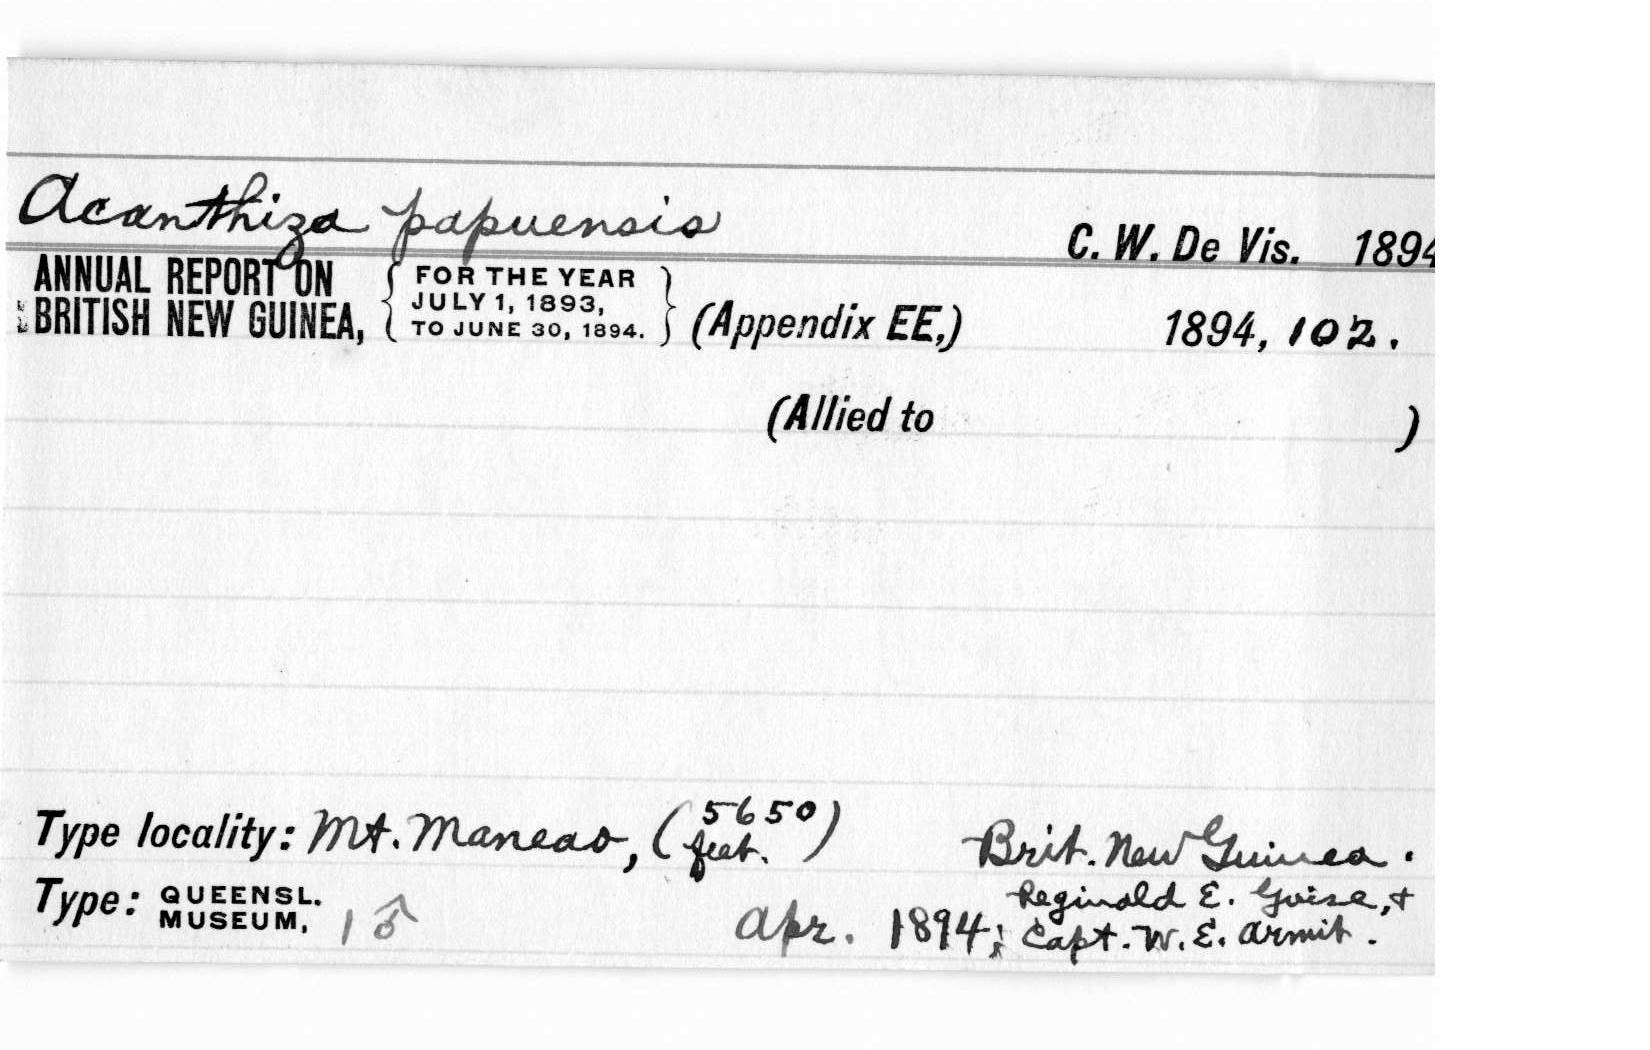 Acanthiza papuensis C. W. De Vis. 1894
ANNUAL REPORT ON { FOR THE YEAR
BRITISH NEW GUINEA, JULY 1, 1893,
TO JUNE 30, 1894. } (Appendix EE,) 1894, 102.
(Allied to )
Type locality: Mt. Maneao, (5650 feet.) Brit. New Guinea.
Type: QUEENSL. MUSEUM, 1 ♂ Apr. 1894; Reginald E. Guise, &
Capt. W. E. Armit.